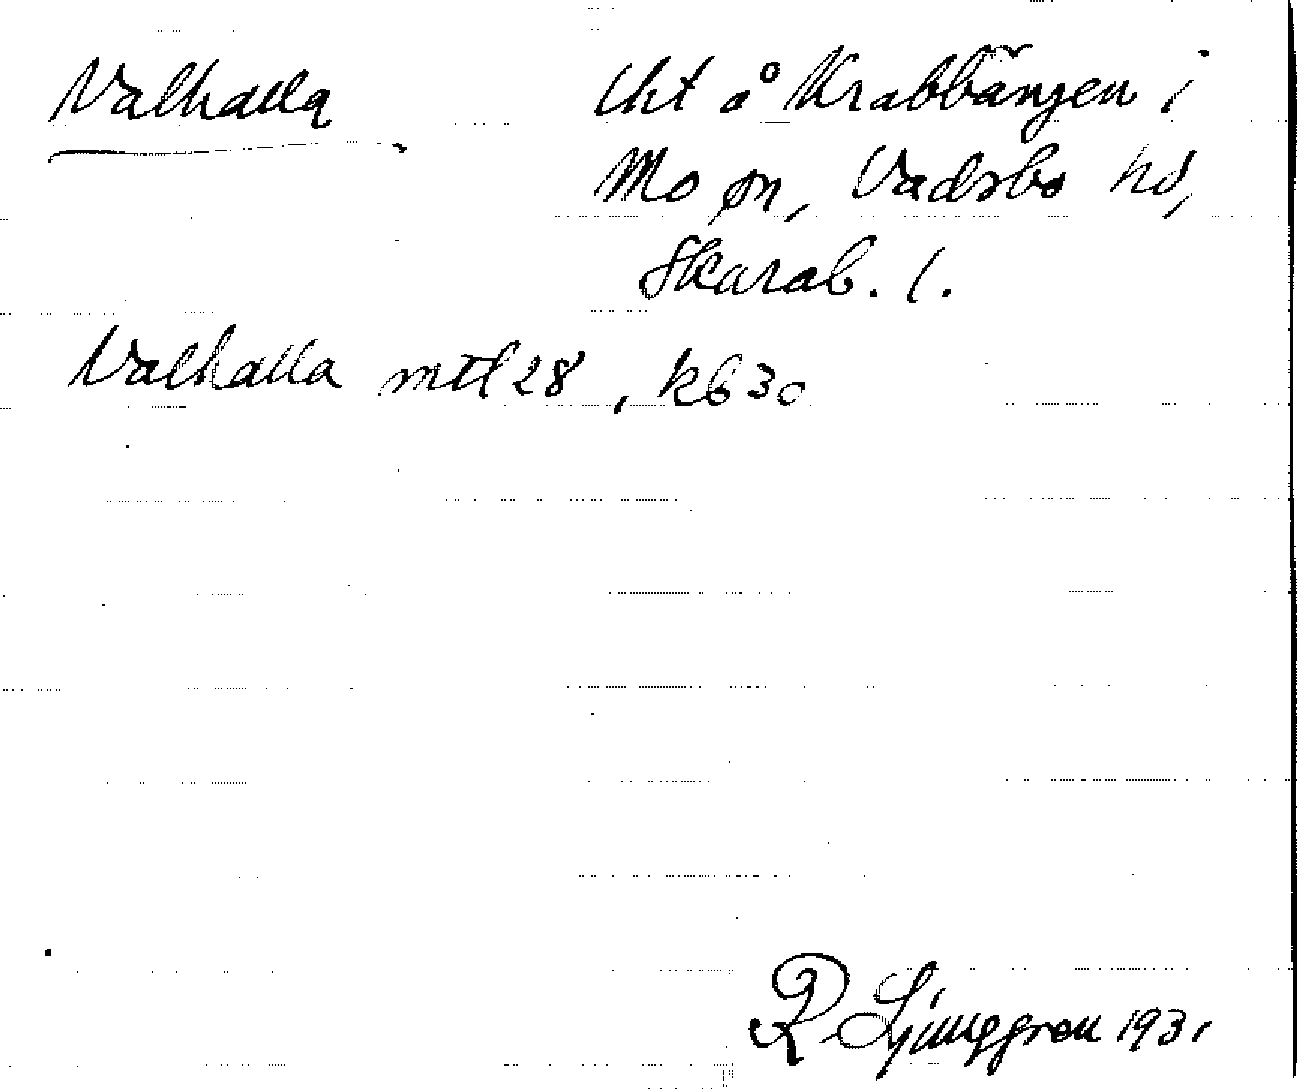 Valhalla
Lht å Krabbängen i
Mo sn, Vadsbo hd,
Skarab. l.
Valhalla mtl 28, kb 30
R Ljunggren 1931